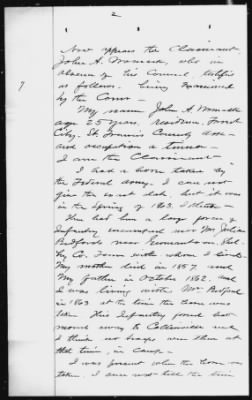 2
Now appears the Claimant
John A. Womack, who in
absence of his Counsel testifies
as follows. being examined
by the Comr —
My name John A. Womack
age 25 years, Residence, Forest
City, St. Francis County Ark—
and occupation a
I am the Claimant
I had a horse taken by
the Federal Army. I can not
give the exact date, but it was
in the Spring of 1863.
They had been a large force of
Infantry encamped near Mr. Julian
Bedfords near Germantown, Shel-
by Co. Tenn with whom I lived.
My mother died in 1857 and
My father in October 1862. And
I was living with Mr. Bedford
in 1863 at the time the horse was
taken This Infantry force had
moved away to Collierville and
I think no troops were there at
that time, in Camp —
I was present when the horse was
taken. I can not tell the time